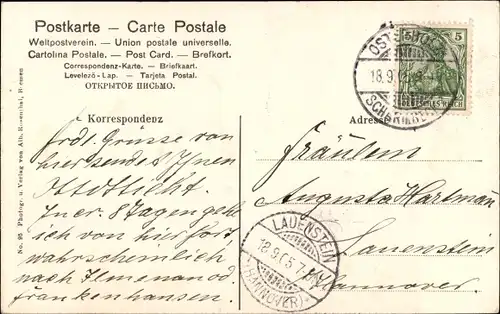 Postkarte – Carte Postale
Weltpostverein. – Union postale universelle.
Cartolina Postale. – Post Card. – Brefkort.
Correspondenz-Karte. – Briefkaart.
Levelező-Lap. – Tarjeta Postal.
ОТКРЫТОЕ ПИСЬМО.
Korrespondenz
Adresse
Herzl. Grüsse von
hier sendet Ihnen
In ca. 8 Tagen gehe
ich von hier fort,
wahrscheinlich
nach Ilmenau od.
Frankenhausen.
Fräulein
Augusta Hartman
Lauenstein
Hannover
5 5
DEUTSCHES REICH
18.9.
LAUENSTEIN
18.9.05.7
(HANNOVER)
No. 96 Photogr. u. Verlag von Alb. Rosenthal, Bremen